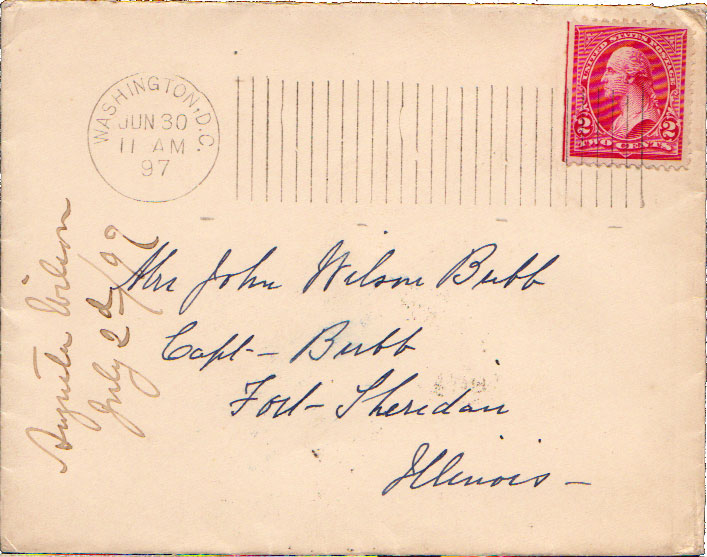 WASHINGTON, D.C.
JUN 30
11 AM
97
UNITED STATES POSTAGE
2 2
TWO CENTS
Mrs John Wilson Bubb
Capt- Bubb
Fort- Sheridan
Illinois -
Wilson
July 2d/97